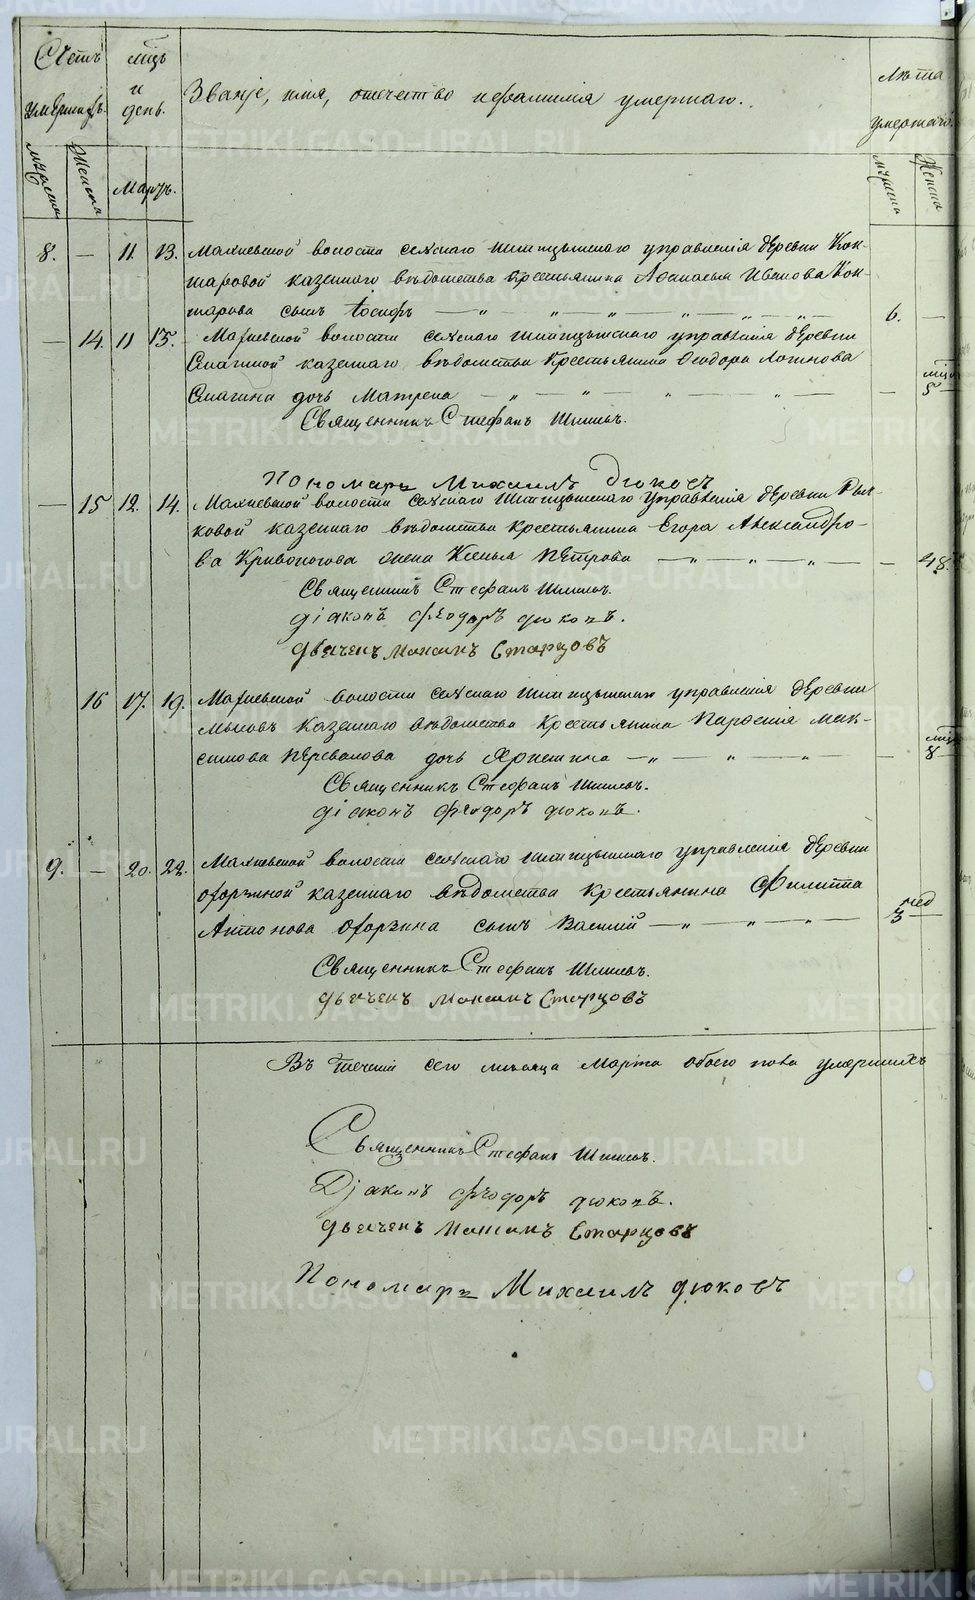 Счетъ умершихъ.
мѣцъ и день.
Званіе, имя, отечество и фамилія умершаго.
Лѣта умершаго.
мужска
Женска
Мартъ.
мужска
Женска
8. — 11. 13. Махневской волости сельскаго управленія деревни Кок-
шаровой казеннаго вѣдомства крестьянина Афанасья Иванова Кок-
шарова сынъ Іосифъ — „ — „ — „ — „ — „ — 6. —
— 14. 11 13. Махневской волости сельскаго управленія деревни
казеннаго вѣдомства крестьянина Ѳеодора Логинова
дочь Матрена — „ — „ — „ — „ — — мѣц 5
Священникъ Стефанъ
Пономарь Михаилъ Дюковъ
— 15 12. 14. Махневской волости сельскаго управленія деревни Рыч-
ковой казеннаго вѣдомства крестьянина Егора Александро-
ва Кривоногова жена Ксенья Петрова — „ — „ — „ — — 48.
Священникъ Стефанъ
Діаконъ Ѳеодоръ Дюковъ.
Дьячекъ Максимъ Старцовъ
16 17. 19. Махневской волости сельскаго управленія деревни
казеннаго вѣдомства крестьянина Парѳенія Мак-
симова Перевалова дочь — „ — „ — „ — — мѣц 8
Священникъ Стефанъ
Діаконъ Ѳеодоръ Дюковъ.
9. — 20. 22. Махневской волости сельскаго управленія деревни
казеннаго вѣдомства крестьянина Филиппа
Антонова сынъ Василій — „ — „ — „ — нед 3 —
Священникъ Стефанъ
Дьячекъ Максимъ Старцовъ
Въ теченіи сего мѣсяца Марта обоего пола умершихъ
Священникъ Стефанъ
Діаконъ Ѳеодоръ Дюковъ.
Дьячекъ Максимъ Старцовъ
Пономарь Михаилъ Дюковъ
METRIKI.GASO-URAL.RU